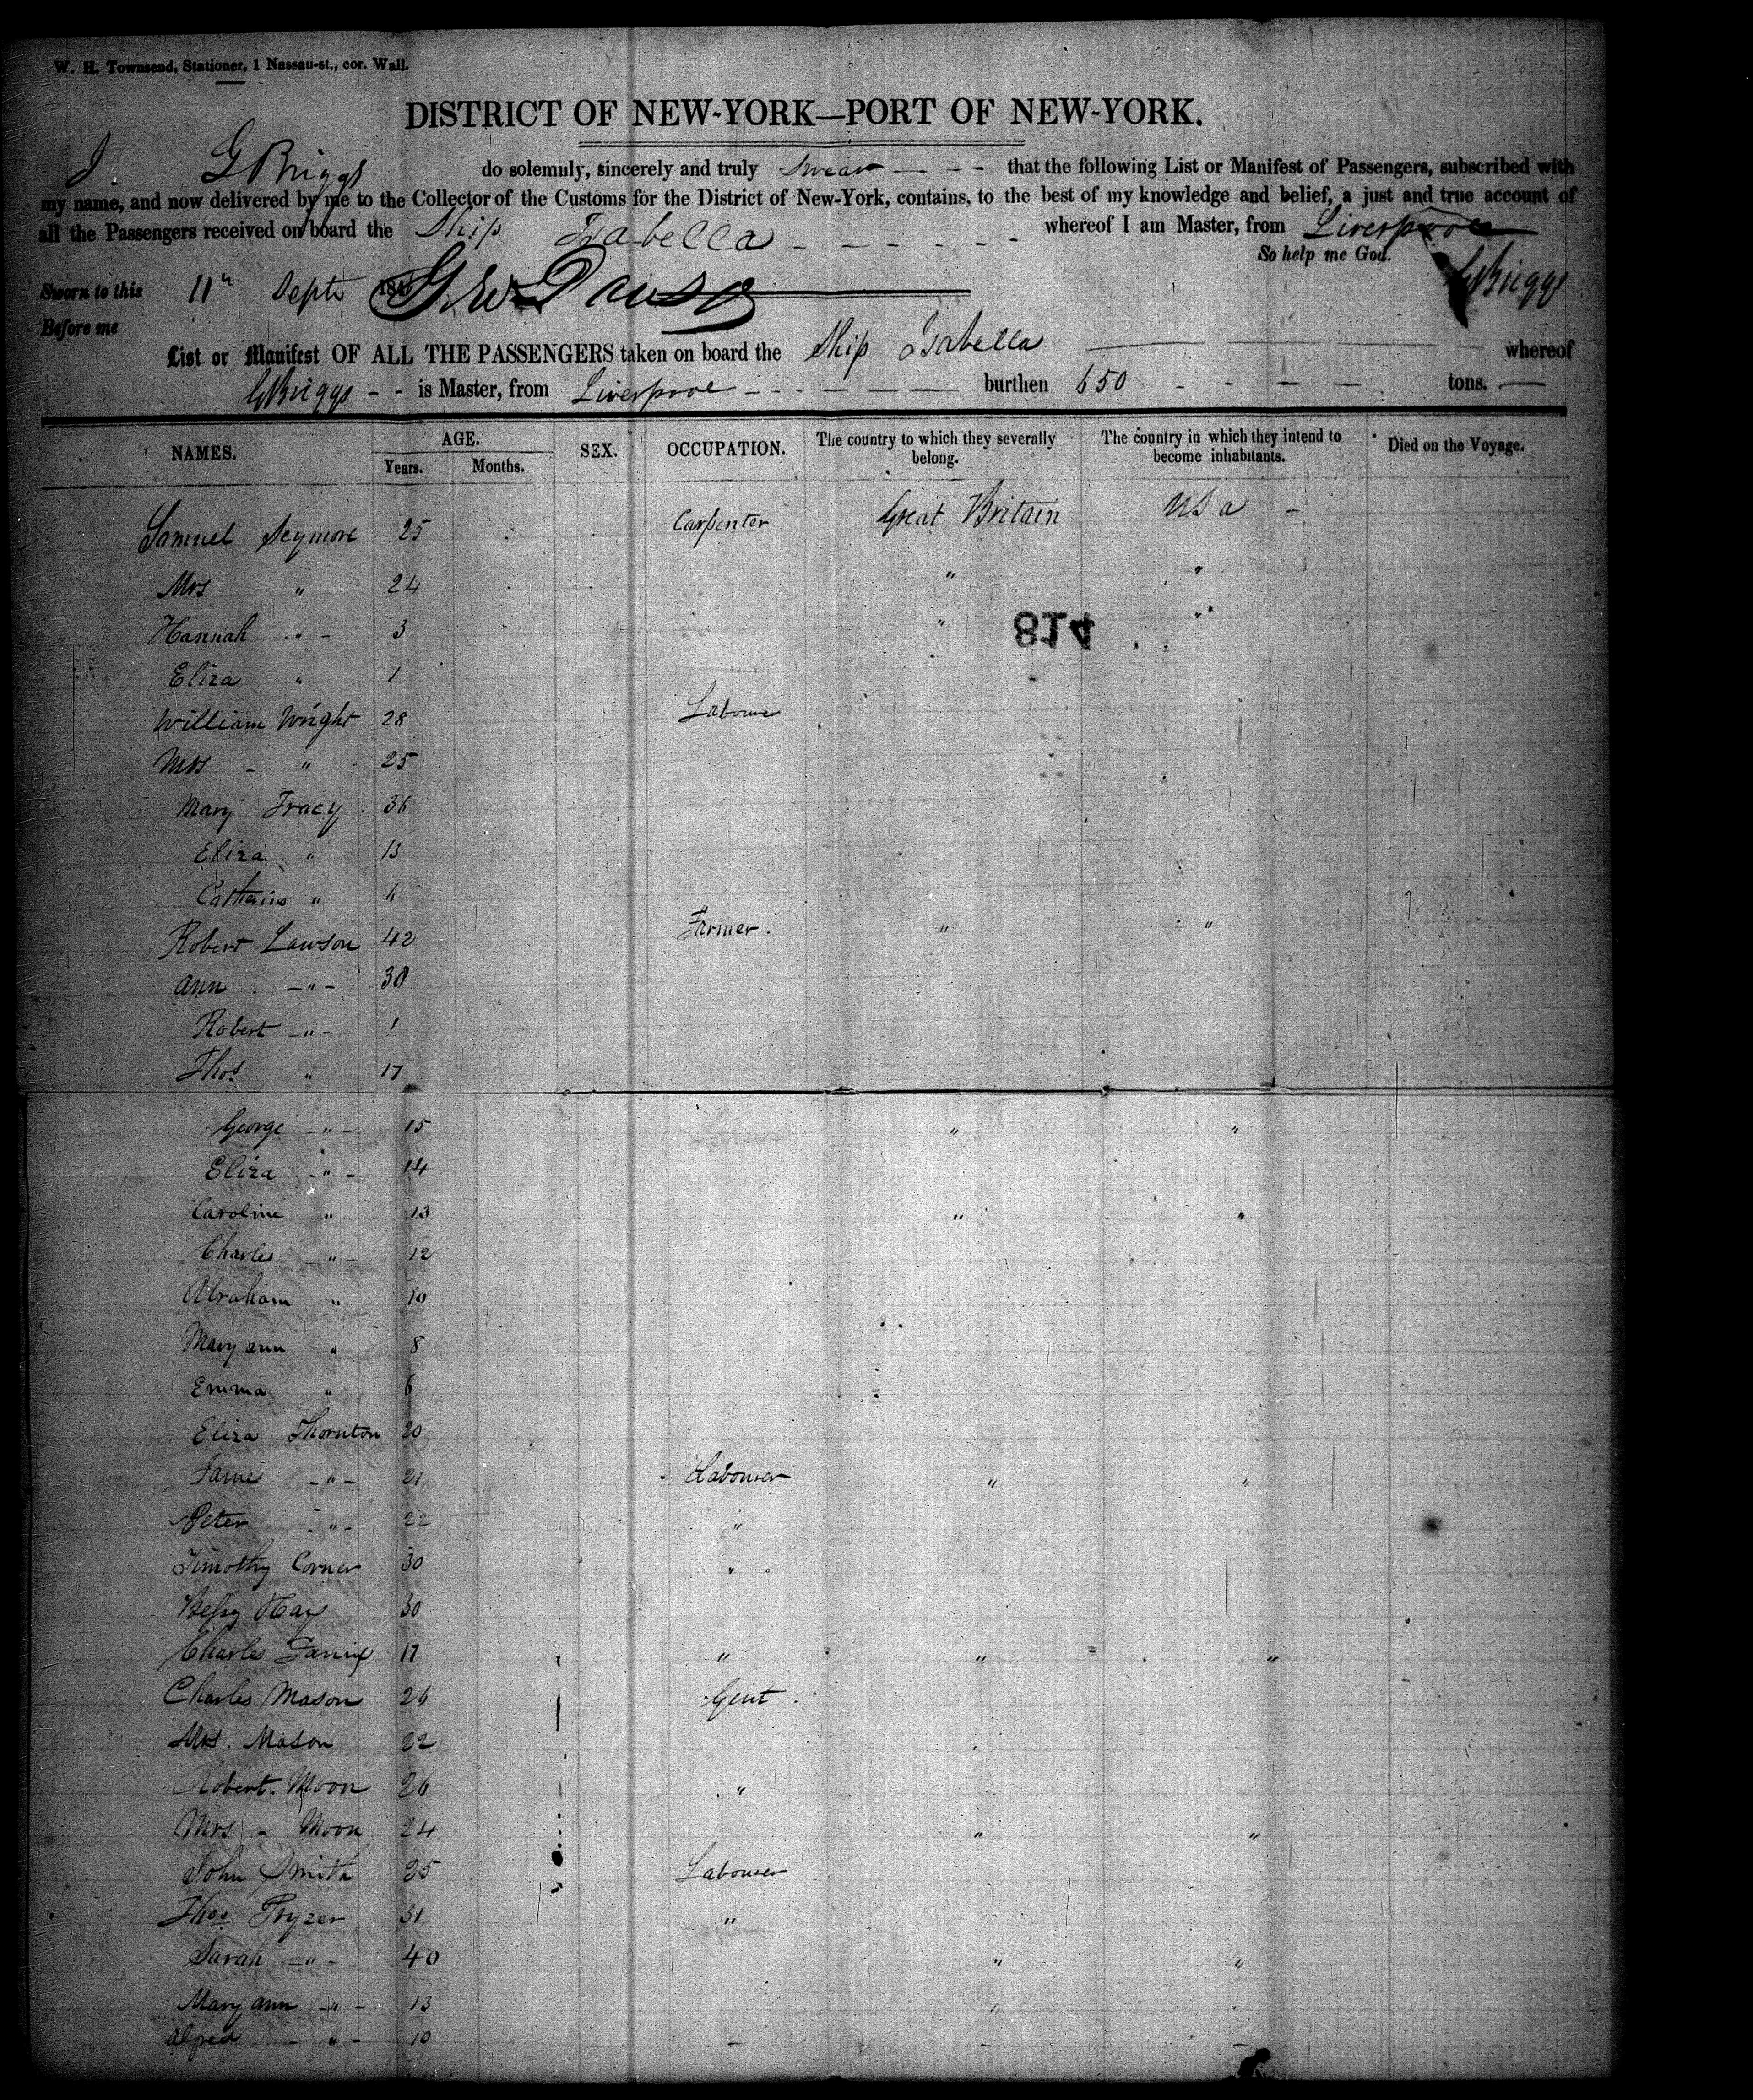 W. H. Townsend, Stationer, 1 Nassau-st., cor. Wall.
DISTRICT OF NEW-YORK—PORT OF NEW-YORK.
I G Briggs do solemnly, sincerely and truly swear - - - that the following List or Manifest of Passengers, subscribed with
my name, and now delivered by me to the Collector of the Customs for the District of New-York, contains, to the best of my knowledge and belief, a just and true account of
all the Passengers received on board the Ship Isabella - - - - - - whereof I am Master, from Liverpool
So help me God.
Sworn to this 11th Septr 184 G Briggs
Before me
List or Manifest OF ALL THE PASSENGERS taken on board the Ship Isabella whereof
G Briggs - - is Master, from Liverpool - - - - burthen 650 - - - - tons.
NAMES. AGE. SEX. OCCUPATION. The country to which they severally belong. The country in which they intend to become inhabitants. Died on the Voyage.
Years. Months.
Samuel Seymore 25 Carpenter Great Britain USa -
Mrs " 24 " "
Hannah " - 3 " "
814
Eliza " 1
William Wright 28 Labourer
Mrs - " 25
Mary Tracy 36
Eliza " 13
Catherine "
Robert Lawson 42 Farmer. " "
Ann - " - 30
Robert - " - 1
Thos " 17
George - " - 15 " "
Eliza - " - 14
Caroline " 13 " "
Charles - " - 12
Abraham " 10
Mary ann " 8
Emma " 6
Eliza Thornton 20
- " - 21 Labourer " "
Peter - " - 22 "
Timothy Corner 30 "
Bessy Hay 30
Charles 17 " " "
Charles Mason 26 Gent.
Mrs. Mason 22
Robert. Moon 26 "
Mrs - Moon 24 " "
John Smith 25 Labourer
Thos Pryzer 31 "
Sarah - " - 40 " "
Mary ann - " - 13 "
Alfred - " - 10 - - -